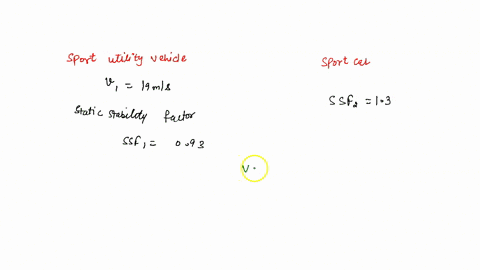 Sport utility vehicle
V₁ = 19 m/s
Static stability factor
SSf₁ = 0.93
Sport car
SSf₂ = 1.3
V.